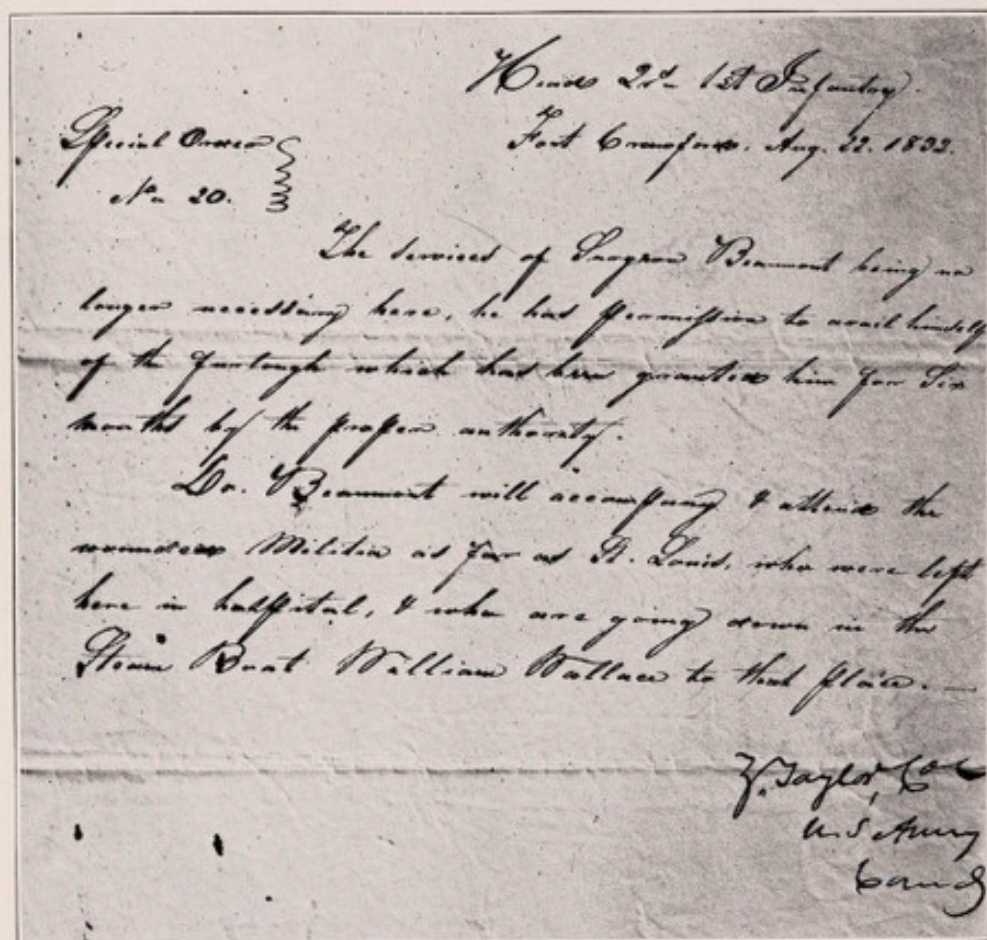 Head Qrs 1st Infantry.
Fort Crawford, Aug. 22. 1832.
Special Order
No 20.
The services of Surgeon Beaumont being no
longer necessary here, he has permission to avail himself
of the furlough which has been granted him for Six
months by the proper authority.
Dr. Beaumont will accompany & attend the
wounded Militia as far as St. Louis, who were left
here in hospital, & who are going down in the
Steam Boat William Wallace to that place. —
Z. Taylor, Col
U.S Army
Comdg